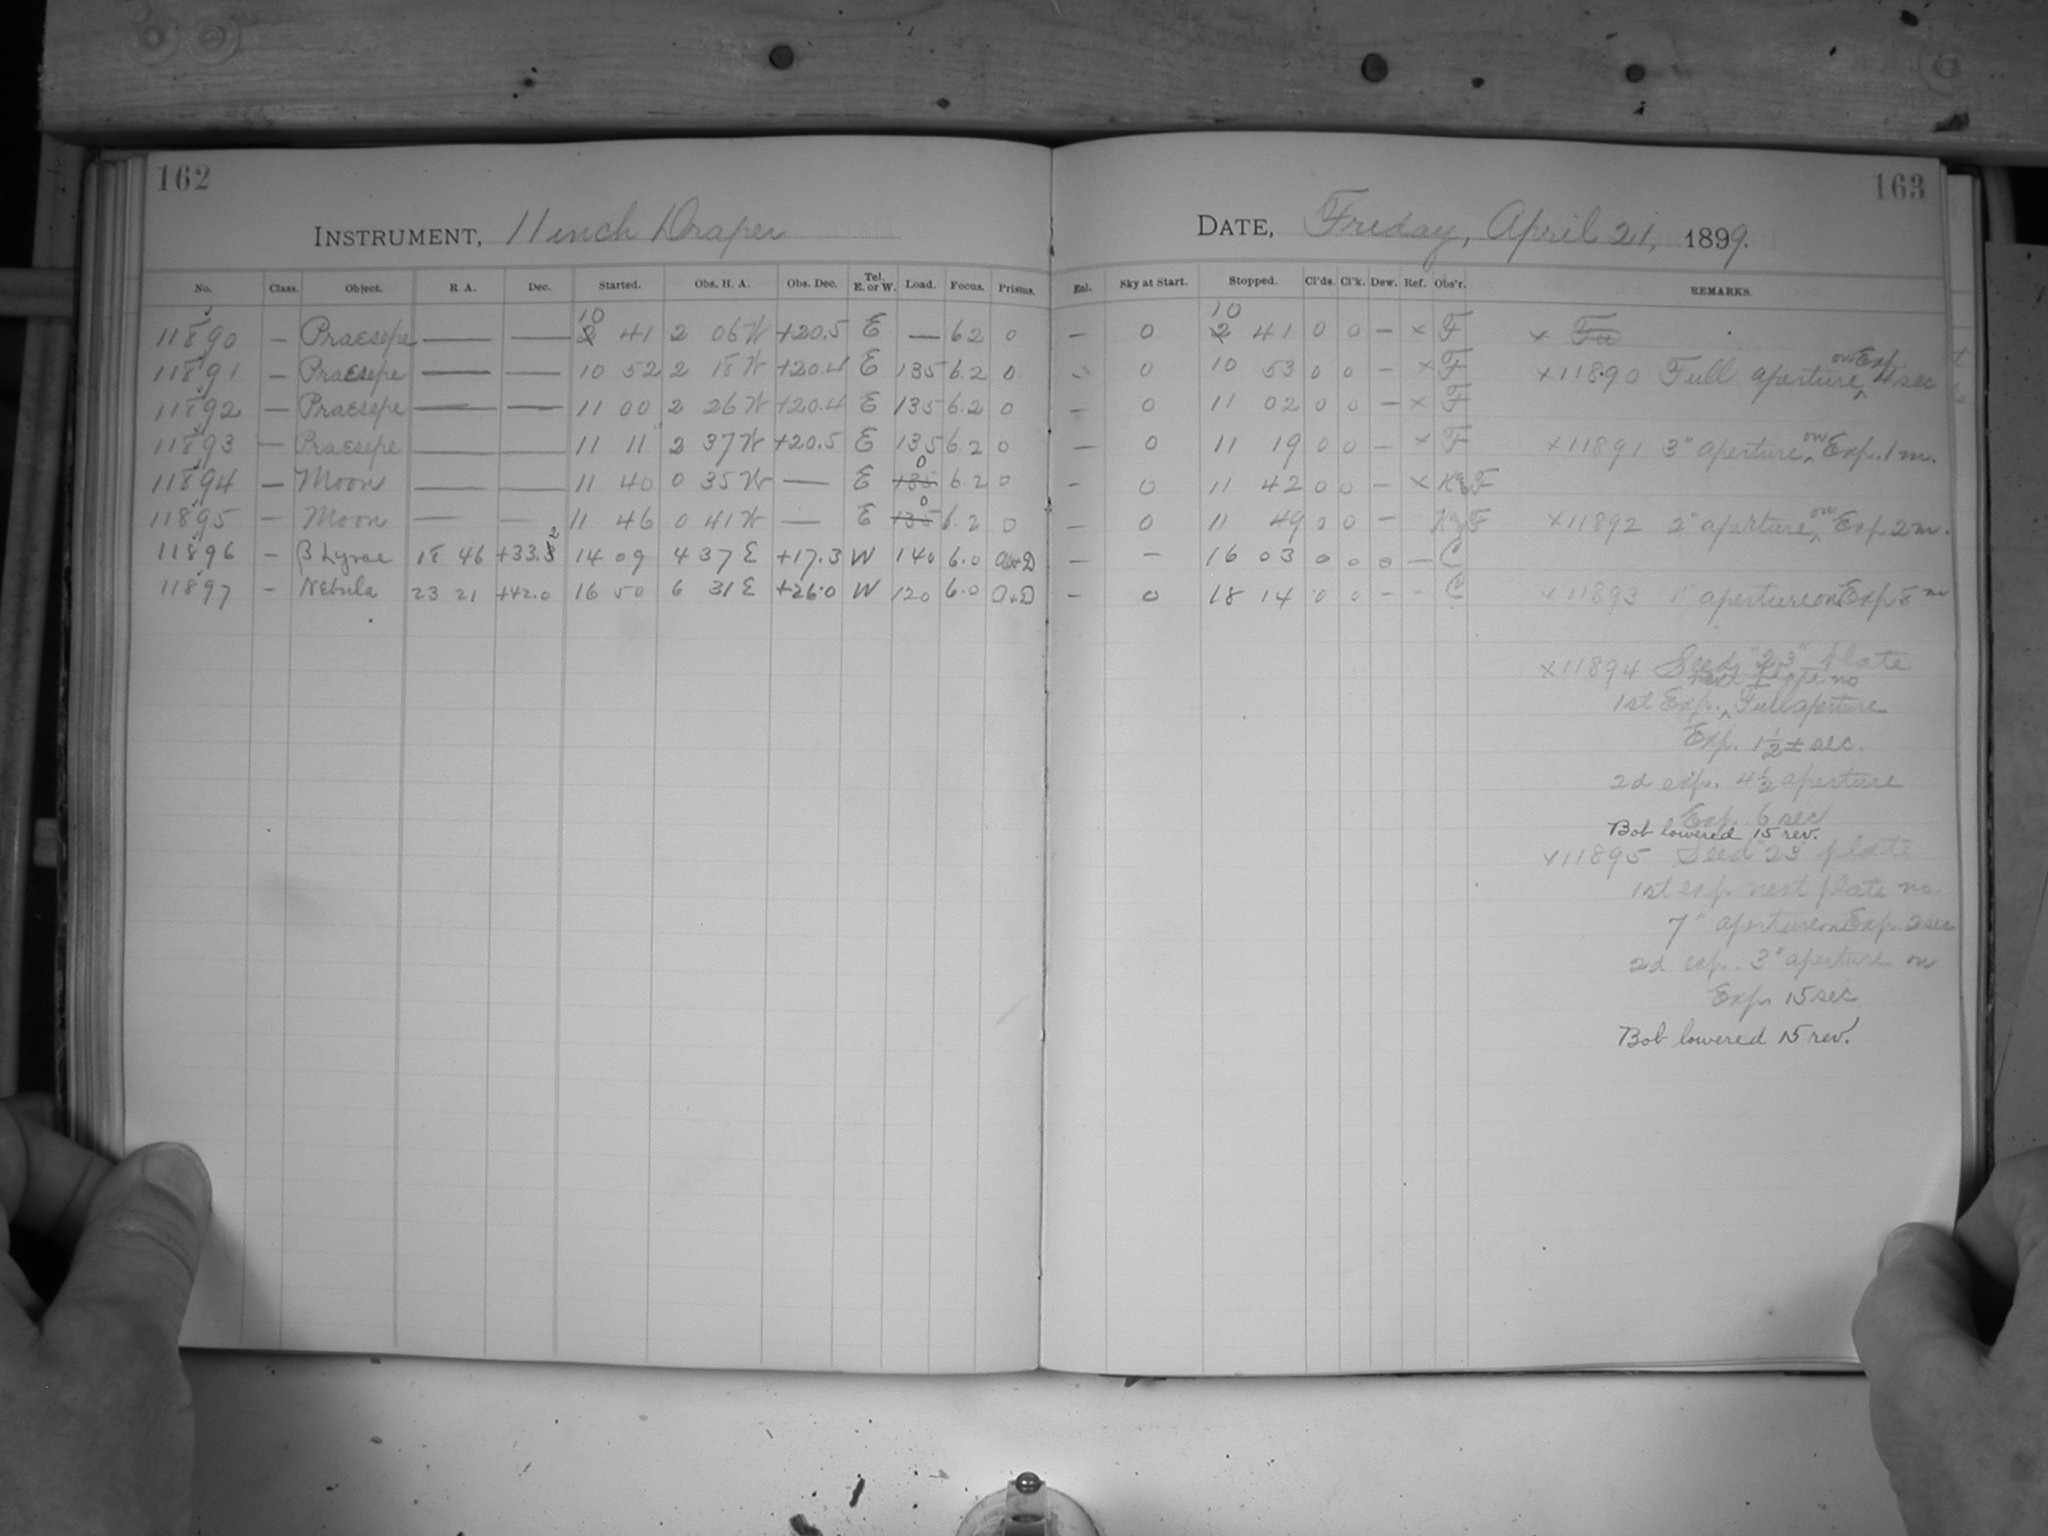 162
INSTRUMENT, 11 inch Draper
No. Class. Object. R. A. Dec. Started. Obs. H. A. Obs. Dec. Tel. E. or W. Load. Focus. Prisms.
11890 — Praesepe — — 10 41 2 06 W +20.5 E — 6 2 0
11891 — Praesepe — — 10 52 2 18 W +20.4 E 135 6.2 0
11892 — Praesepe — — 11 00 2 26 W +20.4 E 135 6.2 0
11893 — Praesepe — — 11 11 2 37 W +20.5 E 135 6.2 0
11894 — Moon — — 11 40 0 35 W — E 0 6.2 0
11895 — Moon — — 11 46 0 41 W — E 0 6.2 0
11896 — β Lyrae 18 46 +33.2 14 09 4 37 E +17.3 W 140 6.0
11897 — Nebula 23 21 +42.0 16 50 6 31 E +26.0 W 120 6.0
163
DATE, Friday, April 21, 1899.
Enl. Sky at Start. Stopped. Cl'ds. Cl'k. Dew. Ref. Obs'r. REMARKS.
— 0 10 41 0 0 — x F x
— 0 10 53 0 0 — x F
x 11890 Full aperture, on Exp. 4 sec
— 0 11 02 0 0 — x F
— 0 11 19 0 0 — x F
x 11891 3" aperture, on Exp. 1 m.
— 0 11 42 0 0 — x
— 0 11 49 0 0 —
x 11892 2" aperture, on Exp. 2 m.
— — 16 03 0 0 0 — C
— 0 18 14 0 0 — — C
x 11893 1" aperture on Exp 8 m
x 11894 Seed "23" plate
next plate no
1st Exp. Full aperture
Exp. 1½ ± sec.
2d exp. 4½ aperture
Exp. 6 sec
Bob lowered 15 rev.
x 11895 Seed 23 plate
1st exp. next plate no.
7" aperture on Exp. 2 sec
2d exp. 3" aperture on
Exp. 15 sec
Bob lowered 15 rev.